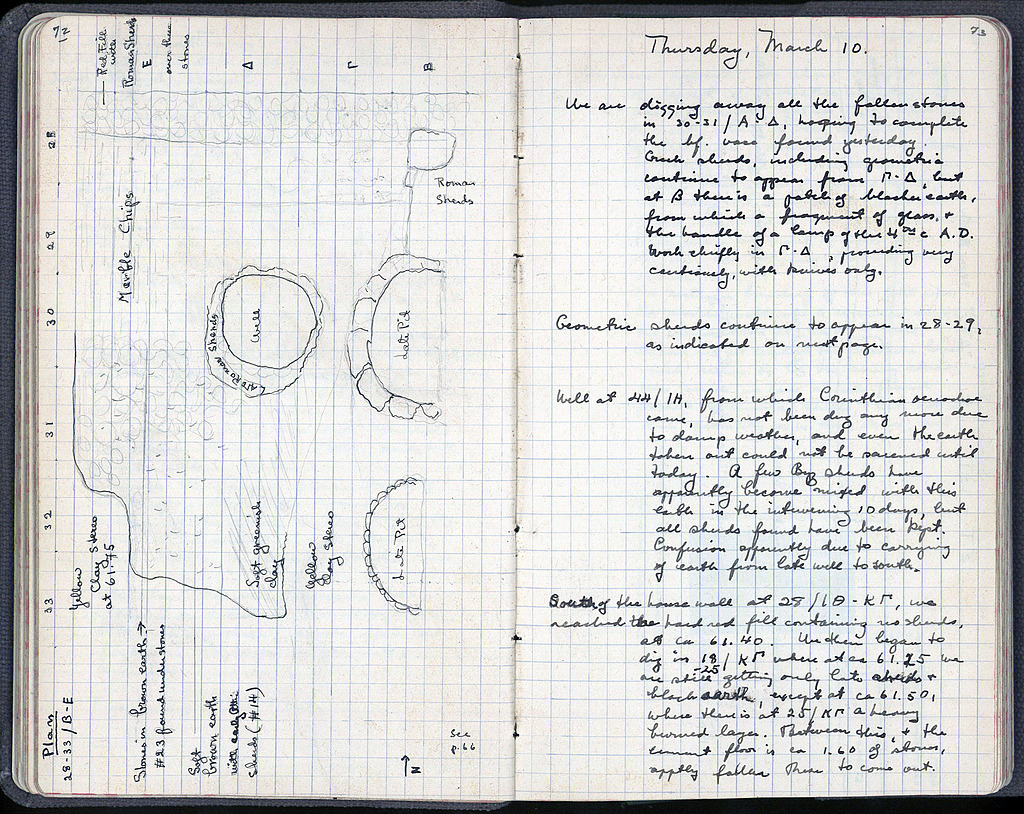 72
Red Fill
with
Roman Sherds
E
over these
stones
Δ
Γ
B
28
29
30
31
32
33
Marble Chips
Roman
Sherds
Well
Late Roman Sherds
Late Pit
Late Pit
Yellow
Clay Stereo
at 61.75
Soft greenish
clay
Yellow
Clay Stereo
Plan
28-33/B-E
Stones in brown earth →
#23 found under stones
Soft
brown earth
with early
sherds (#14)
See
p. 66
N
73
Thursday, March 10.
We are digging away all the fallen stones
in 30-31/A-Δ, hoping to complete
the bf. vase found yesterday.
Much sherds, including geometric
continue to appear from Γ-Δ, but
at B there is a patch of blacker earth,
from which a fragment of glass, +
the handle of a lamp of the 4th c A.D.
Work chiefly in Γ-Δ, proceeding very
cautiously, with knives only.
Geometric sherds continue to appear in 28-29,
as indicated on next page.
Well at 44/ΙΗ, from which Corinthian oenochoe
came, has not been dug any more due
to damp weather, and even the earth
taken out could not be screened until
today. A few Byz sherds have
apparently become mixed with this
earth in the intervening 10 days, but
all sherds found have been kept.
Confusion apparently due to carrying
of earth from late well to south.
South of the house wall at 28/ΙΘ-ΚΓ, we
reached the hard red fill containing no sherds,
at ca 61.40. We then began to
dig in 18/ΚΓ where at ca 61.25 we
-25
are still getting only late sherds +
black earth, except at ca 61.50,
where there is at 25/ΚΓ a heavy
burned layer. Between this, + the
cement floor is ca 1.60 of stones,
apptly fallen there to come out.